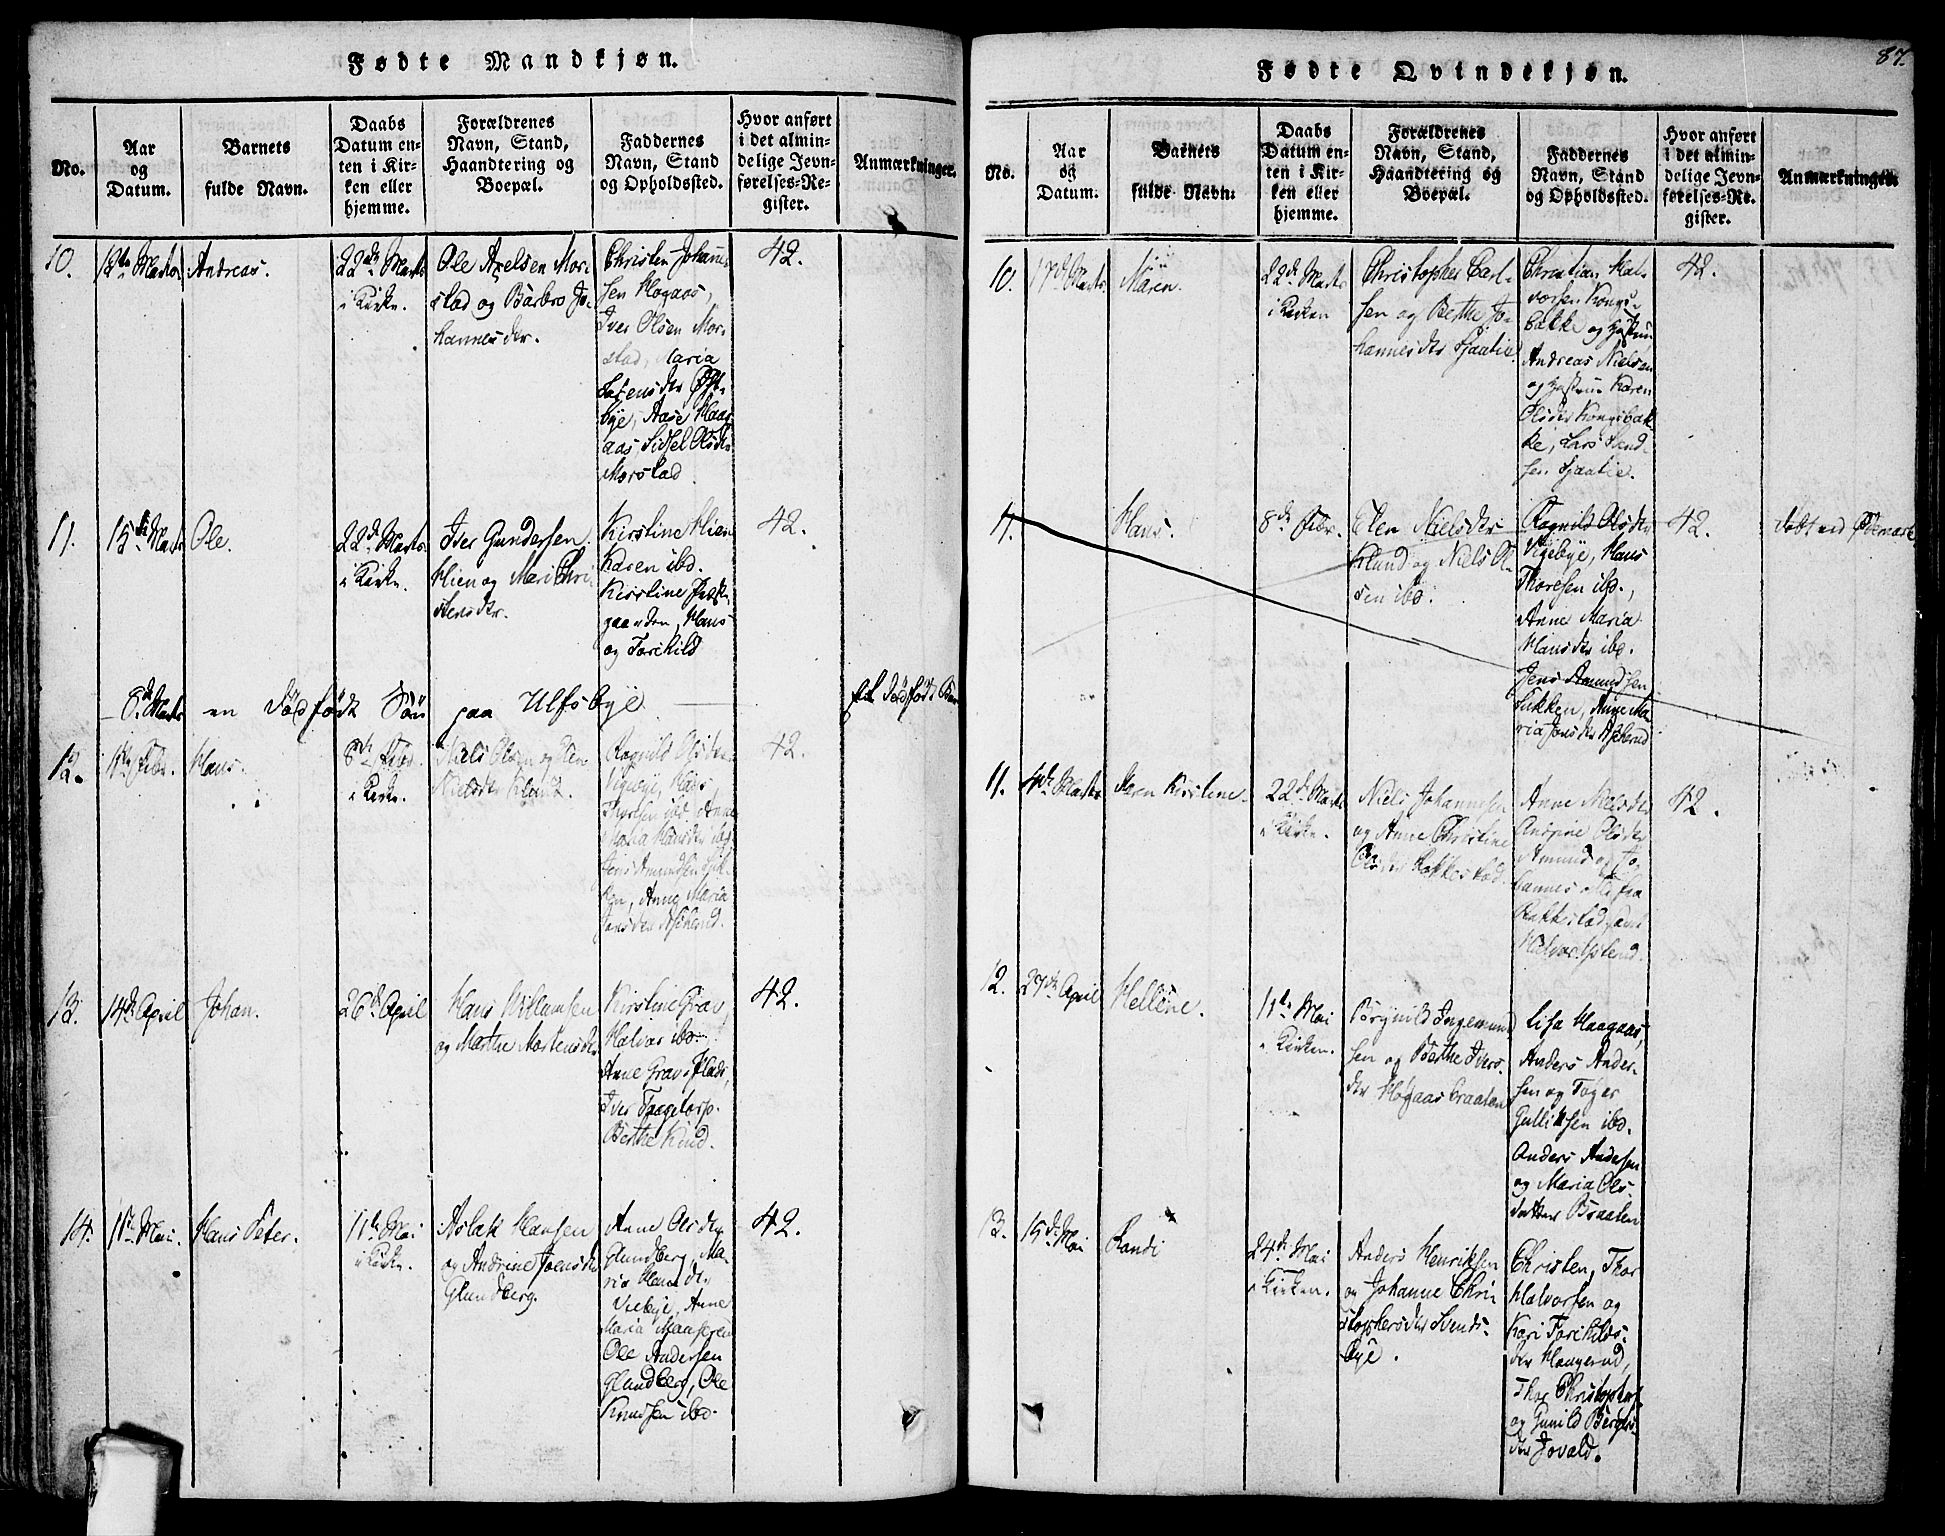 Fødte Mandkjøn.
No.
Aar
og
Datum.
Barnets
fulde Navn.
Daabs
Datum en-
ten i Kir-
ken eller
hjemme.
Forældrenes
Navn, Stand,
Haandtering og
Boepæl.
Faddernes
Navn, Stand
og Opholdssted.
Hvor anført
i det almin-
delige Jevn-
førelses-Re-
gister.
Anmærkninger.
10.
12te Marts
Andreas.
22de Marts
i Kirke.
Ole Axelsen Mor-
stad og Barbro Jo-
hannesdr.
Christen Johannes-
sen Høgaas,
Iver Olsen Mor-
stad, Maria
Sørensdr Øst-
bye, Aase Haag-
aas, Sidsel Olsdr
Morstad.
42.
11.
15de Marts
Ole.
22de Marts
i Kirke.
Iver Gundersen
Hien og Mari Chri-
stensdr.
Kirstine Hien
Karen ibd.
Kirstine
gaarden, Hans
og Torchild
42.
8de Marts
en dødfødt Søn paa Ulfsbye
et dødfødt Barn
12.
Febr.
Hans.
8de Febr.
i Kirke.
Niels Olsen og Elen
Nielsdr Klund.
Ragnild Olsdr
Vigebye, Hans
Thoresen ibd. Anne
Maria Hansdr ibd
Jens Amundsen Suk-
ken, Anne Maria
Jensdr
42.
13.
14de April
Johan.
26de April
Hans Willumsen
og Marthe Mortensdr
Kirstine Grav,
Halvor ibd.
Anne Gravs
Iver Taagetorp.
Berthe Knud.
42.
14.
1ste Mai.
Hans Peter.
11te Mai
i Kirke.
Aslak Hansen
og Andrine Joensdr
Glundberg.
Anne Olsdr
Glundberg, Ma-
ria
Viebye, Anne
Maria
Ole Andersen
Glundberg, Ole
Knudsen ibd.
42.
87.
Fødte Qvindekjøn.
No.
Aar
og
Datum.
Barnets
fulde Navn.
Daabs
Datum en-
ten i Kir-
ken eller
hjemme.
Forældrenes
Navn, Stand,
Haandtering og
Boepæl.
Faddernes
Navn, Stand
og Opholdssted.
Hvor anført
i det almin-
delige Jevn-
førelses-Re-
gister.
Anmærkninger.
10.
17de Marts
Maren.
22de Marts
i Kirken
Christopher Carl-
sen og Berthe Jo-
hannesdr
Christian Hal-
vorsen Kongs-
bakke og Hustrue
Andreas Nielsen
og Hustrue Karen
Olsdr Kongsbak-
ke, Lars
sen
42.
11.
Hans.
8de Febr.
Elen Nielsdr
Klund og Niels Ol-
sen ibd.
Ragnild Olsdr
Vigebye, Hans
Thoresen ibd.,
Anne Maria
Hansdr ibd.
Jens Amundsen
Sukken, Anne Ma-
ria Jensdr
42.
døbt ved
11.
4de Marts
Karen Kirstine.
22de Marts
i Kirke.
Niels Johannesen
og Anne Christine
Olsdr Rakkestad.
Anne Nielsdr
Olsdr
Amund og Jo-
hannes alle fra
Rakkestad samt
Halvor
42.
12.
27de April
Hellene.
11te Mai
i Kirken.
Børgnild Ingemund-
sen og Berthe Ivers-
dr Høgaas braaten
Lisa Haagaas,
Anders Ander-
sen og Toger
Gulliksen ibd.
Anders Andersen
og Maria Ols-
datter Braaten
13.
15de Mai
Randi
24de Mai
i Kirken.
Anders Henriksen
og Johanne Chri-
stophersdr Svends-
bye.
Christen, Thor
Halvorsen og
Kari Torchilds-
dr Haugerud,
Thor Christophers.
og Gunild
dr Jovald.